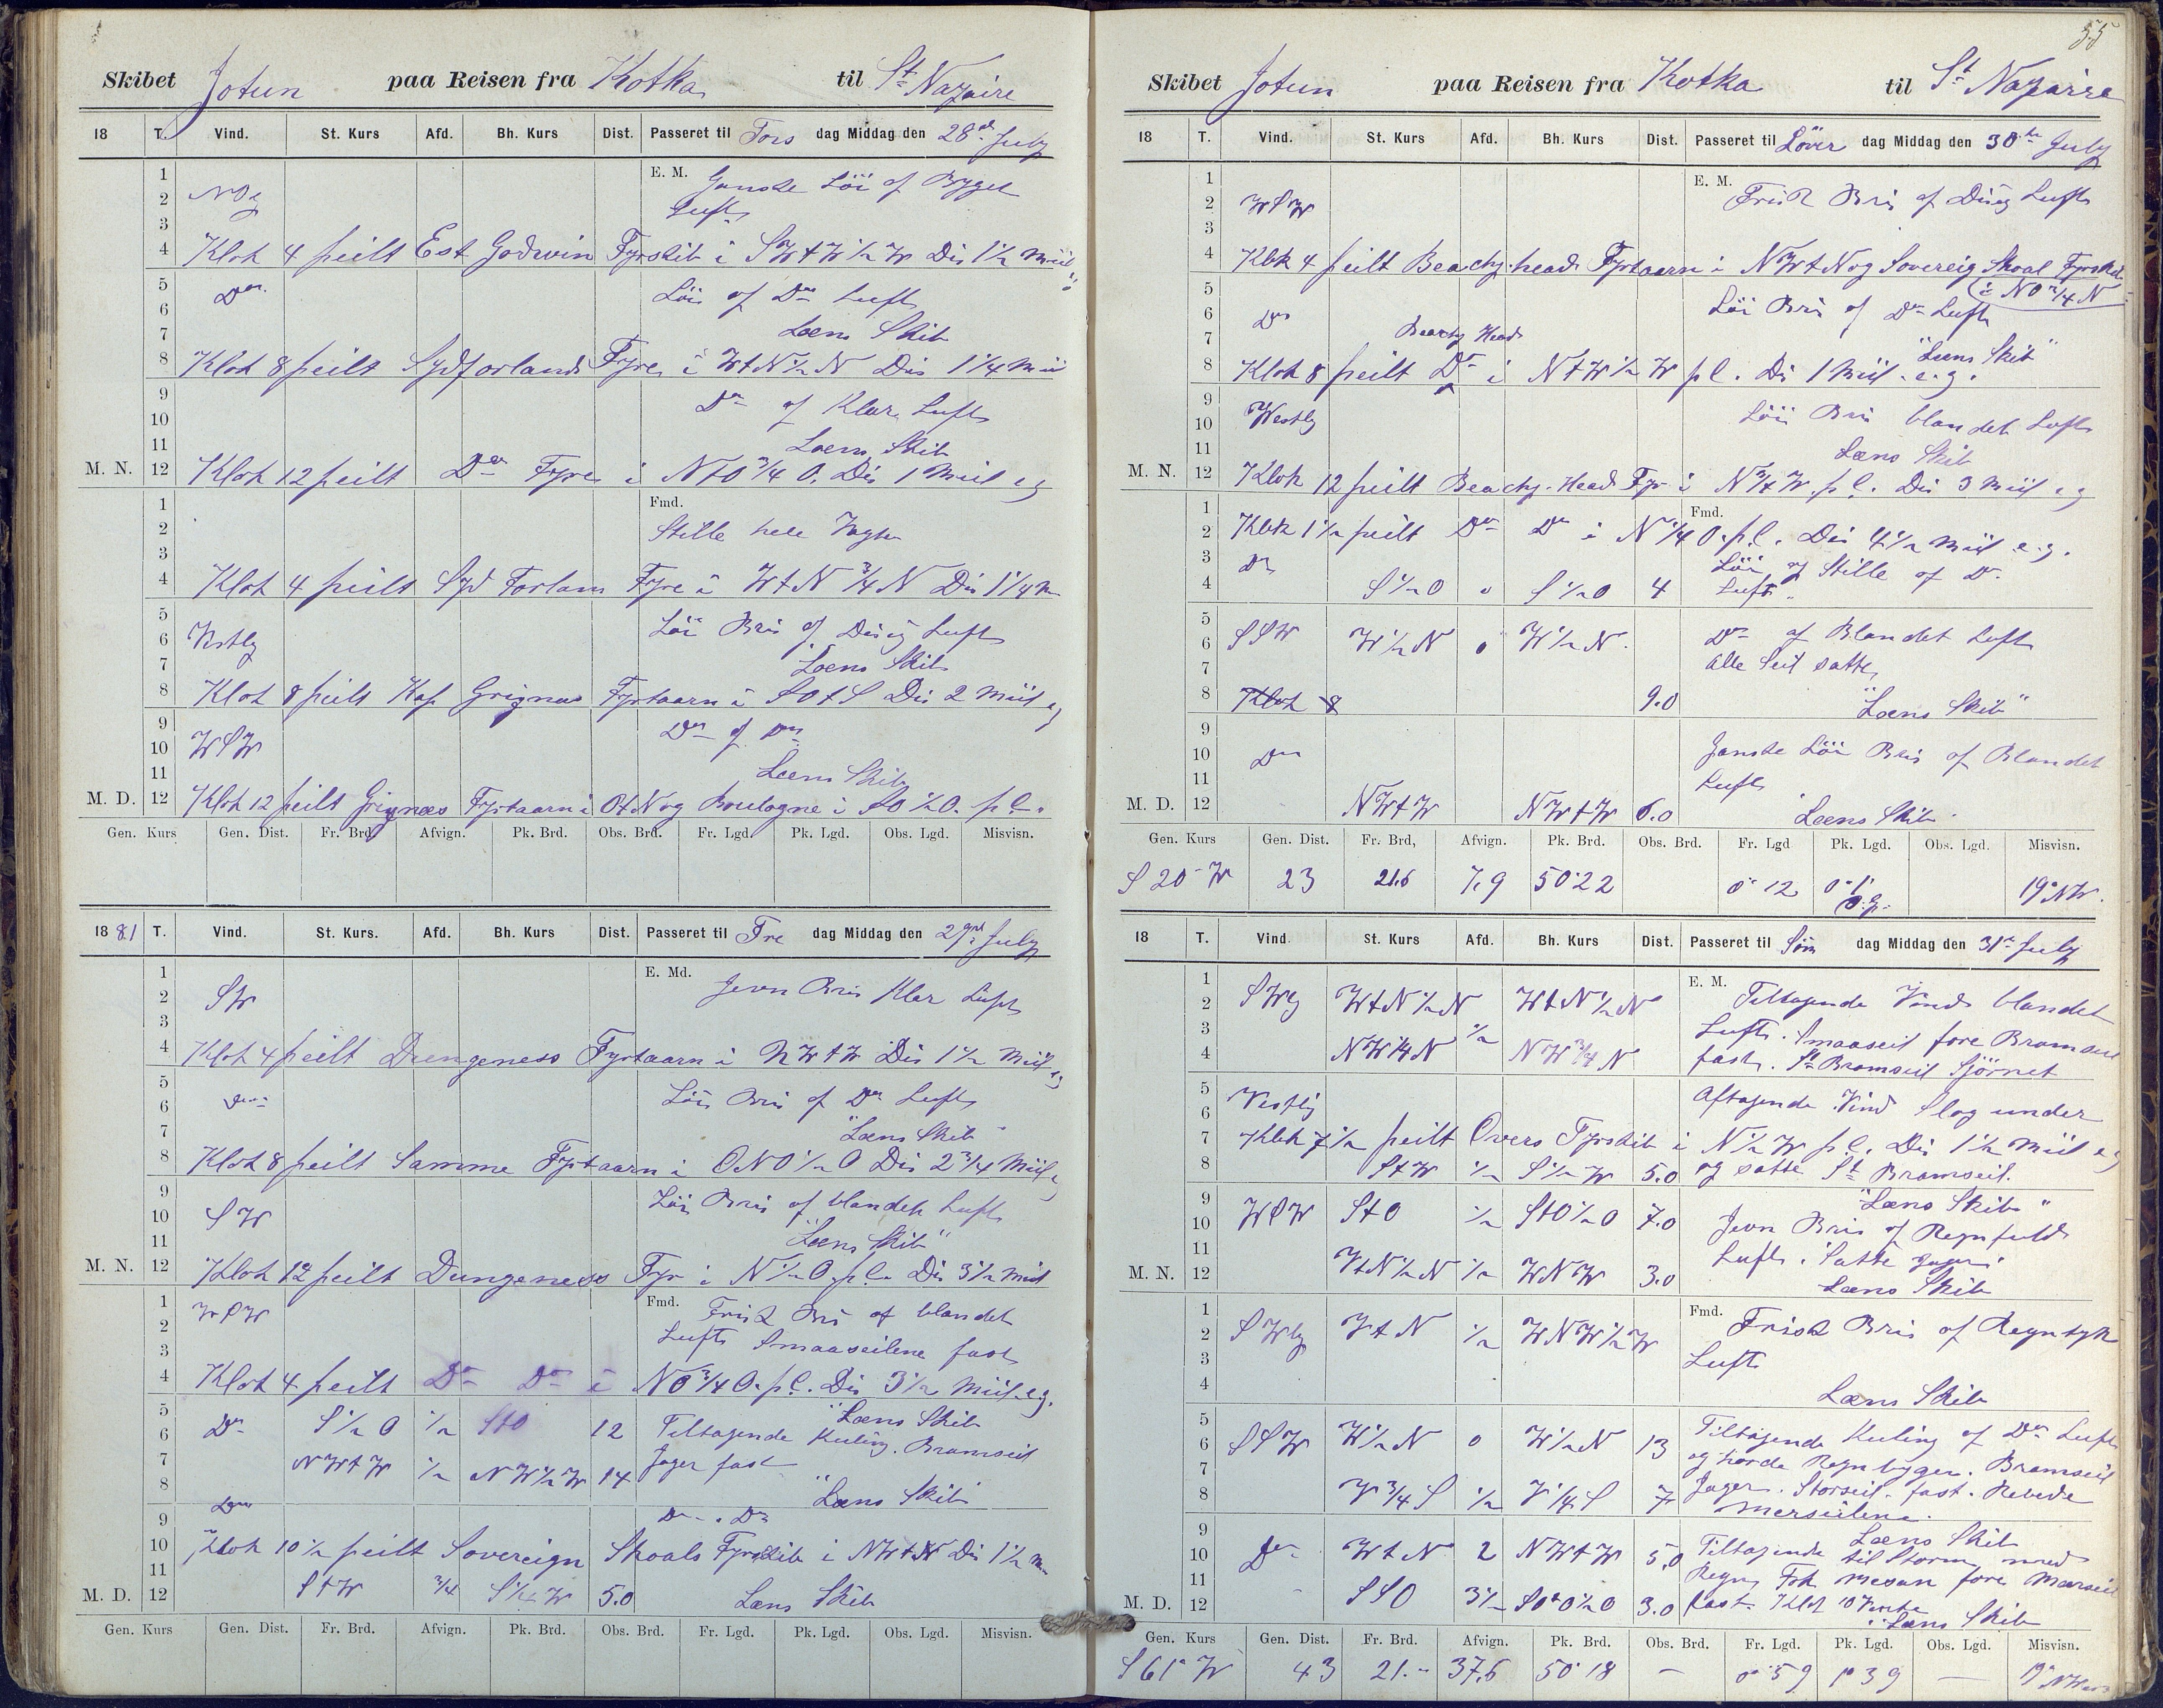 Skibet Jotun paa Reisen fra Kotka til St Nazaire
18 T. Vind. St. Kurs Afd. Bh. Kurs Dist. Passeret til Tors dag Middag den 28de July
1 E. M. Ganske Löi of Bygget
2 NOg Luft
3
4 Klok 4 peilt Est Godwin Fyrskib i SWtW½W Dis 1½ Miil
5 Do Löi of Do Luft
6
7 Læns Skib
8 Klok 8 peilt Sydforlands Fyre i WtN½N Dis 1¼ Mii
9 Do of Klar Luft
10
11 Læns Skib
M. N. 12 Klok 12 peilt Do Fyre i NtO¾O. Dis 1 Miil eg
1 Fmd.
2 Stille hele Vagten
3
4 Klok 4 peilt Syd Forlan Fyre i WtN¾N Dis 1¼ m
5 Löi Bris of Disig Luft
6 Vestlig
7 Læns Skib
8 Klok 8 peilt Kap Grignas Fyrtaarn i SOtS Dis 2 Miil eg
9 Do of Do
10 WSW
11 Læns Skib
M. D. 12 Klok 12 peilt Grignæs Fyrtaarn i OtN og Boulogne i SO½O. p.C.
Gen. Kurs Gen. Dist. Fr. Brd. Afvign. Pk. Brd. Obs. Brd. Fr. Lgd. Pk. Lgd. Obs. Lgd. Misvisn.
1881 T. Vind. St. Kurs. Afd. Bh. Kurs Dist. Passeret til Fre dag Middag den 29de July
1 E. Md. Jevn Bris Klar Luft
2 SW
3
4 Klok 4 peilt Dungeness Fyrtaarn i NWtW Dis 1½ Miil eg
5 Löi Bris of Do Luft
6 Do
7 "Læns Skib"
8 Klok 8 peilt Samme Fyrtaarn i ONO½O Dis 2¾ Miil eg
9 Löi Bris of blandet Luft
10 SW
11 "Læns Skib"
M. N. 12 Klok 12 peilt Dungeness Fyr i N½O p.C. Dis 3½ Miil
1 WSW Fmd. Frisk Bris of blandet
2 Luft Smaaseilene fast
3
4 Klok 4 peilt Do Do i NO¾O. p.C. Dis 3½ Miil e.g.
5 "Læns Skib
6 Do S½O ½ StO 12 Tiltagende Kuling. Bramseil
7 NWtW ½ NW½W 14 Jager fast
8 "Læns Skib"
9 Do Do . Do
10 Klok 10½ peilt Sovereign Shoals Fyrskib i NWtW Dis 1½ m
11
M. D. 12 StW ¾ S¼W 5.0 Læns Skib
Gen. Kurs Gen. Dist. Fr. Brd. Afvign. Pk. Brd. Obs. Brd. Fr. Lgd. Pk. Lgd. Obs. Lgd. Misvisn.
55
Skibet Jotun paa Reisen fra Kotka til St Nazaire
18 T. Vind. St. Kurs Afd. Bh. Kurs Dist. Passeret til Löver dag Middag den 30te July
1 E. M. Frisk Bris of Disig Luft
2 WSW
3
4 Klok 4 peilt Beachy-head Fyrtaarn i NWtN og Sovereig Shoal Fyrskib
5 i NO¾N
6 Do Löi Bris of Do Luft
7 Beachy Head "Læns Skib"
8 Klok 8 peilt Do i NtW½W p C. Dis 1 Miil e.g.
9 Löi Bris blandet Luft
10 Westlig
11 Læns Skib
M. N. 12 Klok 12 peilt Beachy-Head Fyr i N¾W. p C. Dis 3 Miil eg
1 Fmd.
2 Klok 1½ peilt Do Do i N¼O. p.C. Dis 4½ Miil e.g.
3 Do Löi og Stille of Do
4 S½O o S½O 4 Luft.
5
6 SSW W½N o W½N. Do of Blandet Luft
7 alle Seil satte,
8 Klok 8 9.0 "Læns Skib"
9
10 Do Ganske Löi Bris of Blandet
11 Luft
M. D. 12 NWtW NWtW 6.0 Læns Skib
Gen. Kurs Gen. Dist. Fr. Brd, Afvign. Pk. Brd. Obs. Brd. Fr. Lgd Pk. Lgd. Obs. Lgd. Misvisn.
S20°W 23 21.6 7.9 50°22 0°12 0°1' 19°NW.
18 T. Vind. St. Kurs Afd. Bh. Kurs Dist. Passeret til Søn dag Middag den 31te July
1 E. M. Tiltagende Vind blandet
2 SWlg WtN½N WtN½N
3 ½ Luft. Smaaseil fore Bramseil
4 NW¼N NW¾N fast. St Bramseil Sjörnet
5 aftagende Vind Slog under
6 Vestlig
7 Klok 7½ peilt Overs Fyrskib i N½W p.C. Dis 1½ Miil eg
8 StW ½ S½W 5.0 og satte St Bramseil.
9 "Læns Skib"
10 WSW StO ½ StO½O 7.0 Jevn Bris of Regnfuld
11 Luft. Satte Jager
M. N. 12 VtN½N ½ WNW 3.0 Læns Skib
1 Fmd. Frisk Bris of Regntyk
2 SWlg VtN ½ WNW½W
3 Luft
4 Læns Skib
5 Tiltagende Kuling of Do Luft
6 SSW W½N o W½N 13 og harde Regnbyger. Bramseil
7 Jager. Storseil. fast. Rebede
8 V¾S ½ V¼S 7 Merseilene.
9 Læns Skib
10 Do WtN 2 NWtW 5.0 Tiltagende til Storm med
11 Regn, Fok Mesan fore Merseil
M. D. 12 SSO 3½ SOtO½O 3.0 fast Klok 10 Vendte
Læns Skib
Gen. Kurs Gen. Dist. Fr. Brd. Afvign. Pk. Brd. Obs. Brd. Fr. Lgd. Pk. Lgd. Obs. Lgd. Misvisn.
S61°W 43 21.- 37.6 50°18 — 0°59 1°39 — 19°